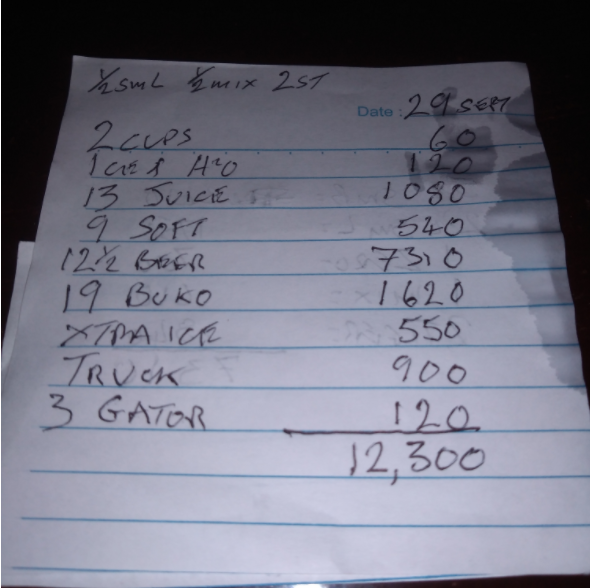 ½ SML ½ MIX 2 ST
Date : 29 SEPT
2 CUPS 60
1 ICE & H2O 120
13 JUICE 1080
9 SOFT 540
12½ BEER 7310
19 BUKO 1620
XTRA ICE 550
TRUCK 900
3 GATOR 120
12,300